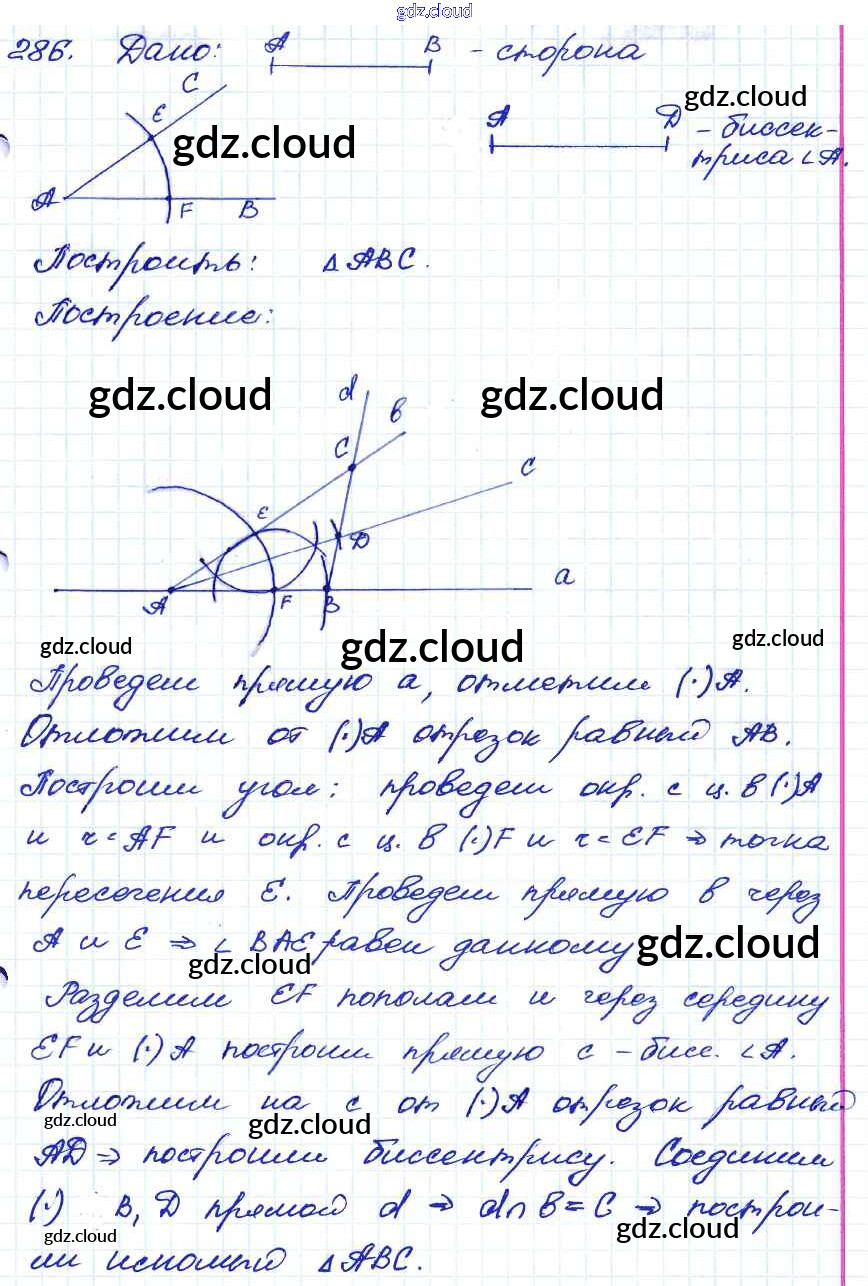 gdz.cloud
286. Дано: A B - сторона
C
E
gdz.cloud
gdz.cloud
A D - биссек-
триса ∠A.
A F B
Построить: △ABC.
Построение:
gdz.cloud gdz.cloud
d
b
C
c
E
D
a
A F B
gdz.cloud gdz.cloud gdz.cloud
Проведем прямую a, отметим (·)A.
Отложим от (·)A отрезок равный AB.
Построим угол: проведем окр. с ц. в (·)A
и r=AF и окр. с ц. в (·)F и r=EF ⇒ точка
пересечения E. Проведем прямую b через
A и E ⇒ ∠BAE равен данному gdz.cloud
gdz.cloud
Разделим EF пополам и через середину
EF и (·)A построим прямую c - бисс. ∠A.
Отложим на c от (·)A отрезок равный
gdz.cloud gdz.cloud
AD ⇒ построили биссектрису. Соединим
(·) B, D прямой d ⇒ d∩b=C ⇒ построи-
gdz.cloud gdz.cloud
ли искомый △ABC.